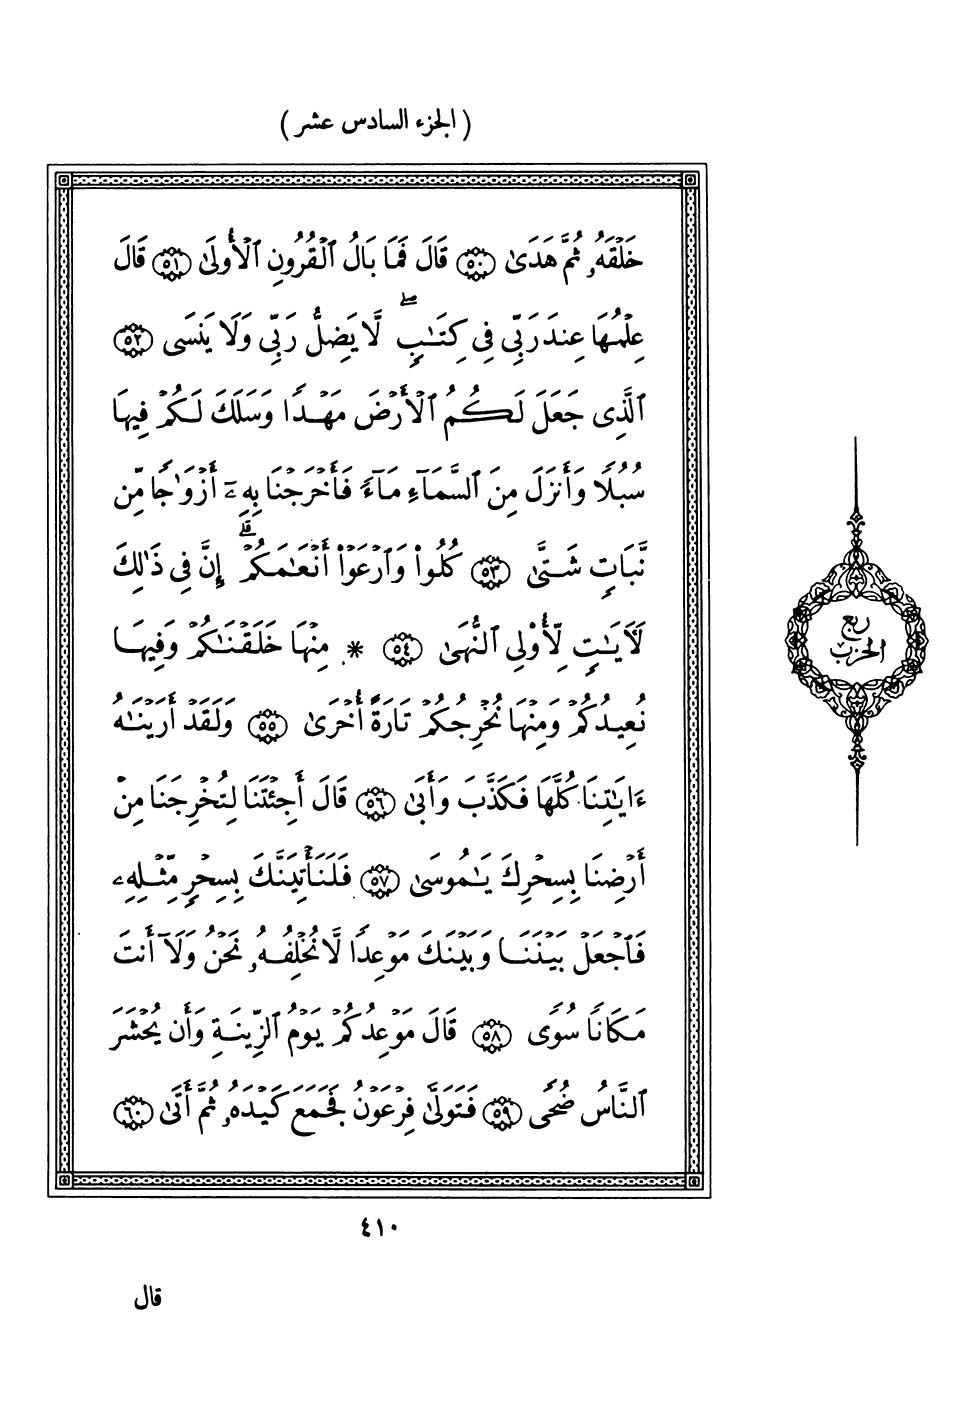 ( الجزء السادس عشر )
خَلْقَهُۥ ثُمَّ هَدَىٰ ﴿٥٠﴾ قَالَ فَمَا بَالُ ٱلْقُرُونِ ٱلْأُولَىٰ ﴿٥١﴾ قَالَ
عِلْمُهَا عِندَ رَبِّى فِى كِتَـٰبٍ ۖ لَّا يَضِلُّ رَبِّى وَلَا يَنسَى ﴿٥٢﴾
ٱلَّذِى جَعَلَ لَكُمُ ٱلْأَرْضَ مَهْدًا وَسَلَكَ لَكُمْ فِيهَا
سُبُلًا وَأَنزَلَ مِنَ ٱلسَّمَآءِ مَآءً فَأَخْرَجْنَا بِهِۦٓ أَزْوَٰجًا مِّن
نَّبَاتٍ شَتَّىٰ ﴿٥٣﴾ كُلُوا۟ وَٱرْعَوْا۟ أَنْعَـٰمَكُمْ ۗ إِنَّ فِى ذَٰلِكَ
لَـَٔايَـٰتٍ لِّأُو۟لِى ٱلنُّهَىٰ ﴿٥٤﴾ * مِنْهَا خَلَقْنَـٰكُمْ وَفِيهَا
نُعِيدُكُمْ وَمِنْهَا نُخْرِجُكُمْ تَارَةً أُخْرَىٰ ﴿٥٥﴾ وَلَقَدْ أَرَيْنَـٰهُ
ءَايَـٰتِنَا كُلَّهَا فَكَذَّبَ وَأَبَىٰ ﴿٥٦﴾ قَالَ أَجِئْتَنَا لِتُخْرِجَنَا مِنْ
أَرْضِنَا بِسِحْرِكَ يَـٰمُوسَىٰ ﴿٥٧﴾ فَلَنَأْتِيَنَّكَ بِسِحْرٍ مِّثْلِهِۦ
فَٱجْعَلْ بَيْنَنَا وَبَيْنَكَ مَوْعِدًا لَّا نُخْلِفُهُۥ نَحْنُ وَلَآ أَنتَ
مَكَانًا سُوًى ﴿٥٨﴾ قَالَ مَوْعِدُكُمْ يَوْمُ ٱلزِّينَةِ وَأَن يُحْشَرَ
ٱلنَّاسُ ضُحًى ﴿٥٩﴾ فَتَوَلَّىٰ فِرْعَوْنُ فَجَمَعَ كَيْدَهُۥ ثُمَّ أَتَىٰ ﴿٦٠﴾
ربع
الحزب
٤١٠
قال